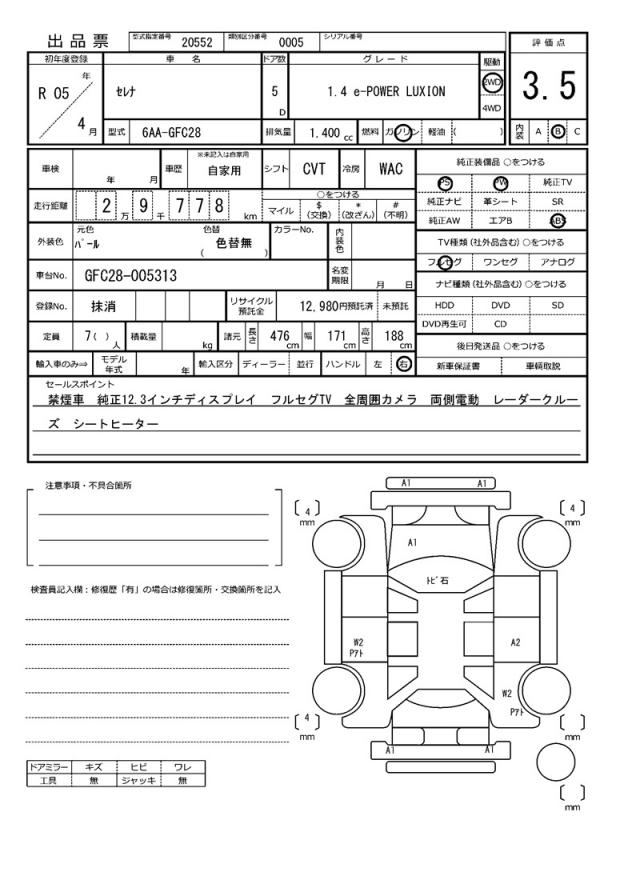 出品票
型式指定番号 20552 類別区分番号 0005 シリアル番号
評価点
3.5
内装 A B C
初年度登録 車名 ドア数 グレード 駆動
R 05 年 4 月
セレナ 5 D 1.4 e-POWER LUXION 2WD
4WD
型式 6AA-GFC28 排気量 1,400 cc 燃料 ガソリン 軽油 ( )
車検 年 月 車歴 ※未記入は自家用 自家用 シフト CVT 冷房 WAC
走行距離 2 万 9 千 7 7 8 km
○をつける
マイル $(交換) *(改ざん) #(不明)
外装色 元色 パール 色替 ( 色替無 ) カラーNo. 内装色
車台No. GFC28-005313 名変期限 月 日
登録No. 抹消 リサイクル預託金 12,980円預託済 未預託
定員 7( )人 積載量 kg 諸元 長さ 476 cm 幅 171 cm 高さ 188 cm
輸入車のみ⇒ モデル年式 年 輸入区分 ディーラー 並行 ハンドル 左 右
純正装備品 ○をつける
PS PW 純正TV
純正ナビ 革シート SR
純正AW エアB ABS
TV種類 (社外品含む) ○をつける
フルセグ ワンセグ アナログ
ナビ種類 (社外品含む) ○をつける
HDD DVD SD
DVD再生可 CD
後日発送品 ○をつける
新車保証書 車輌取説
セールスポイント
禁煙車 純正12.3インチディスプレイ フルセグTV 全周囲カメラ 両側電動 レーダークルー
ズ シートヒーター
注意事項・不具合箇所
検査員記入欄：修復歴「有」の場合は修復箇所・交換箇所を記入
ドアミラー キズ ヒビ ワレ
工具 無 ジャッキ 無
A1 A1
4 mm
4 mm
A1
トビ石
W2
Pアト
A2
W2
Pアト
4 mm
mm
A1 A1
mm